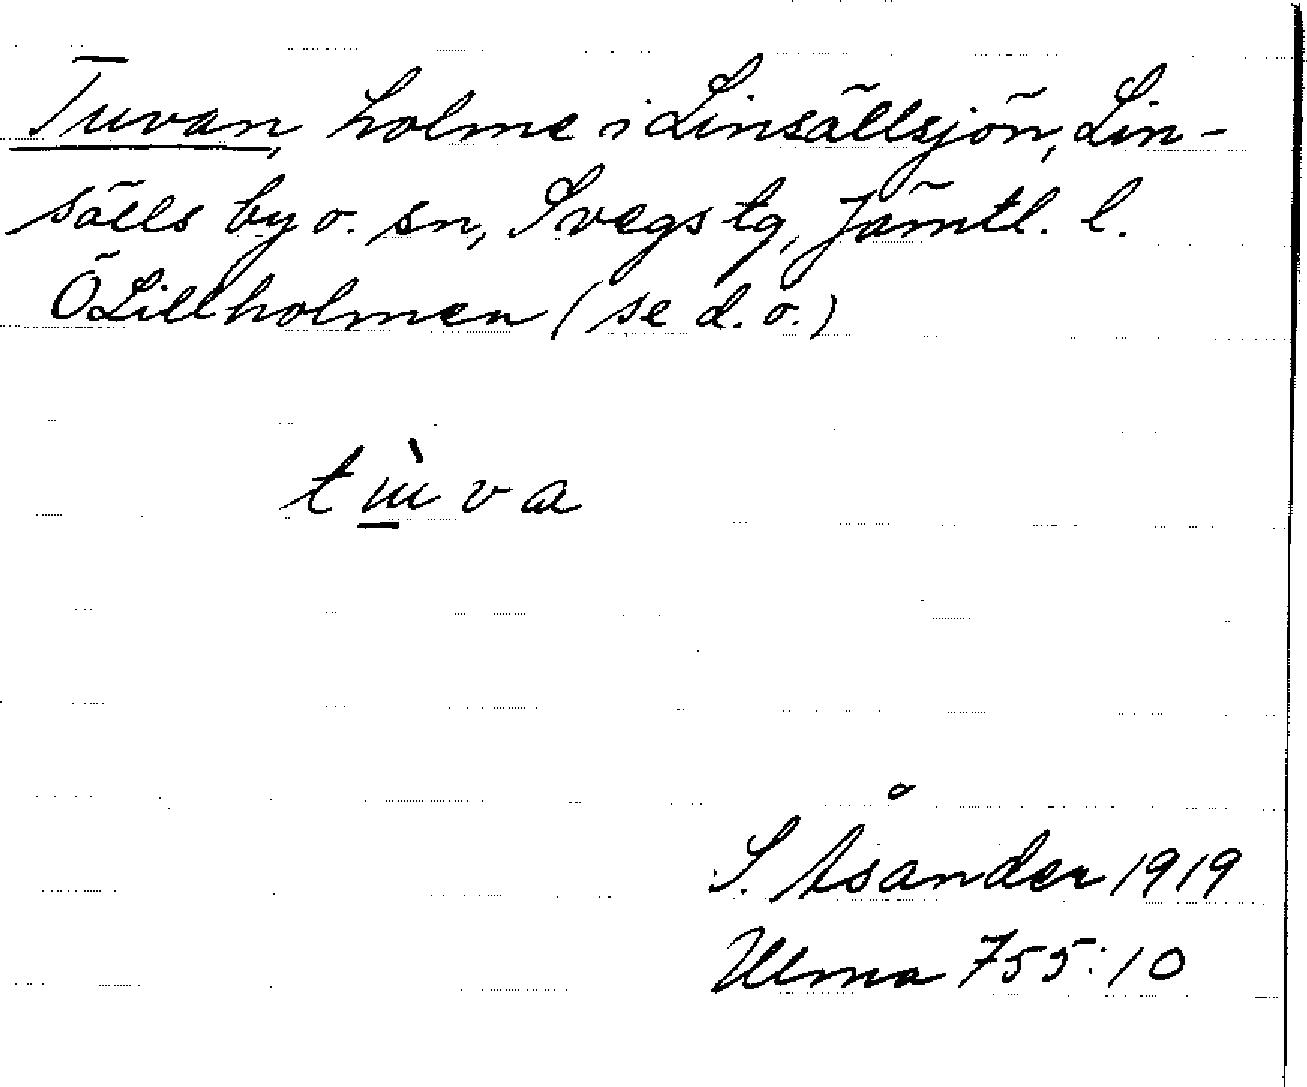 Tuvan, holme i Linsällsjön, Lin-
sälls by o. sn, Svegs tg, Jämtl. l.
Ö Lillholmen (se d. o.)
tù̲va
S. Åsander 1919
Ulma 755:10